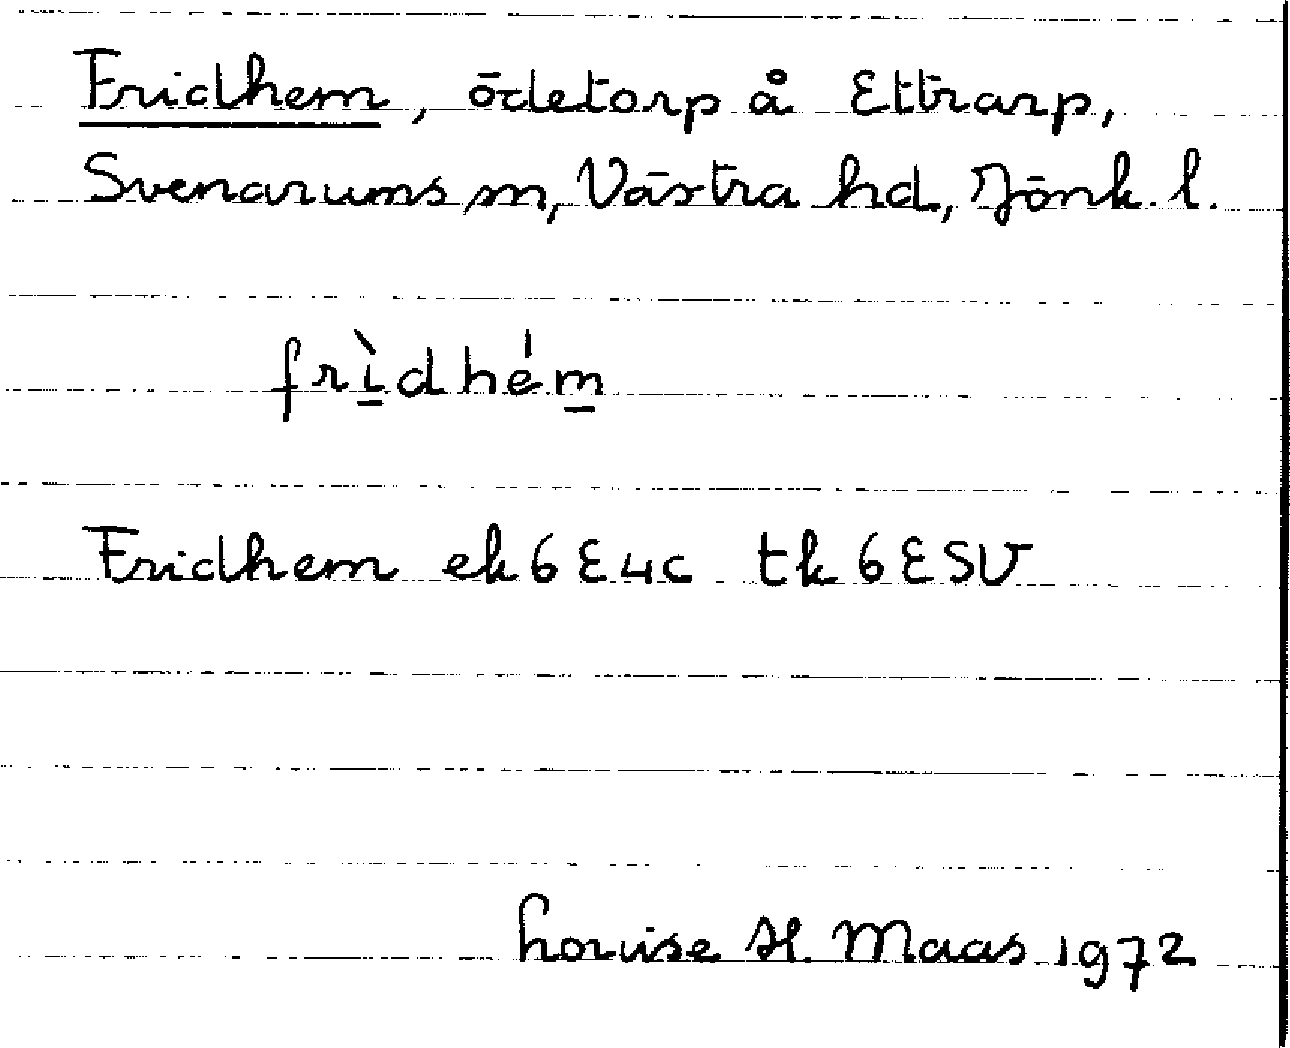 Fridhem, ödetorp å Ettrarp,
Svenarums sn, Västra hd, Jönk. l.
frìdhém
Fridhem ek 6 E 4c tk 6 E SV
Louise H. Maas 1972